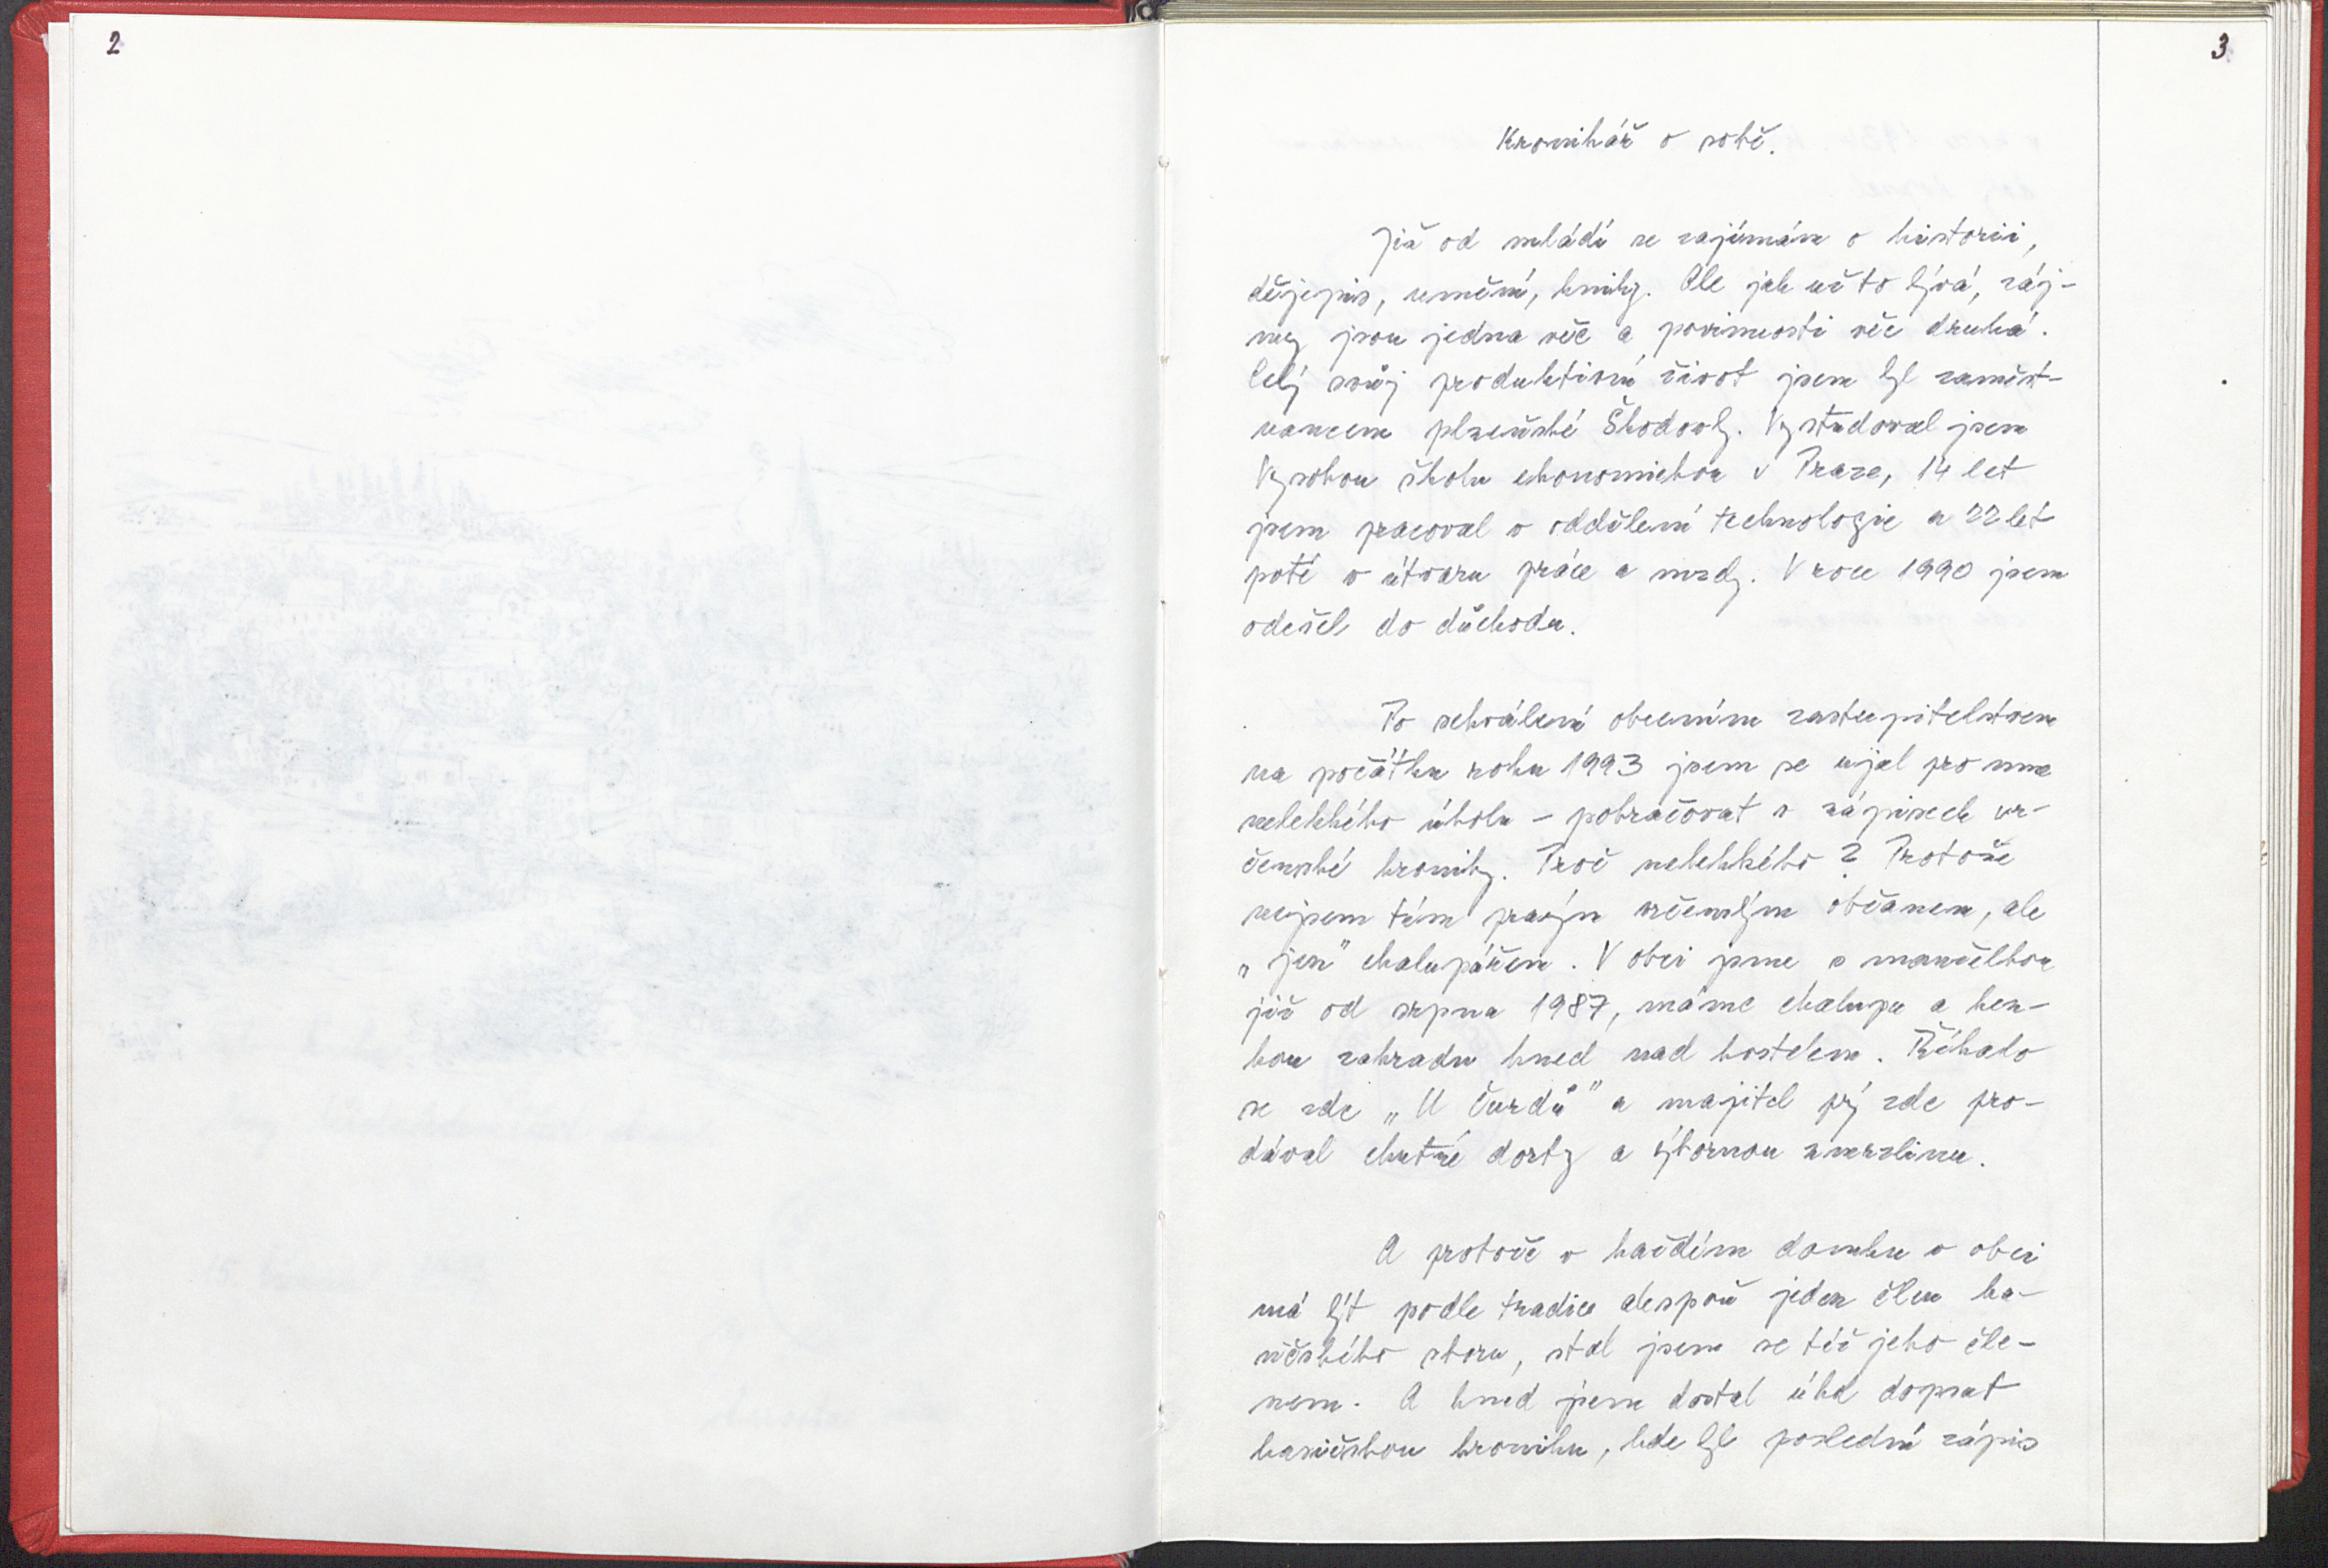 2
3
Kronikář o sobě.
Již od mládí se zajímám o historii,
dějepis, umění, knihy. Ale jak už to bývá, záj-
my jsou jedna věc a povinnosti věc druhá.
Celý svůj produktivní život jsem byl zaměst-
nancem plzeňské Škodovky. Vystudoval jsem
Vysokou školu ekonomickou v Praze, 14 let
jsem pracoval v oddělení technologie a 22 let
poté v útvaru práce a mzdy. V roce 1990 jsem
odešel do důchodu.
Po schválení obecním zastupitelstvem
na počátku roku 1993 jsem se ujal pro mne
nelehkého úkolu – pokračovat v zápisech vr-
čenské kroniky. Proč nelehkého? Protože
nejsem tím pravým vrčenským občanem, ale
„jen" chalupářem. V obci jsme s manželkou
již od srpna 1987, máme chalupu a hez-
kou zahradu hned nad kostelem. Říkalo
se zde „U Čurdů" a majitel prý zde pro-
dával chutné dorty a výbornou zmrzlinu.
A protože v každém domku v obci
má být podle tradice alespoň jeden člen ha-
sičského sboru, stal jsem se též jeho čle-
nem. A hned jsem dostal úkol dopsat
hasičskou kroniku, kde byl poslední zápis